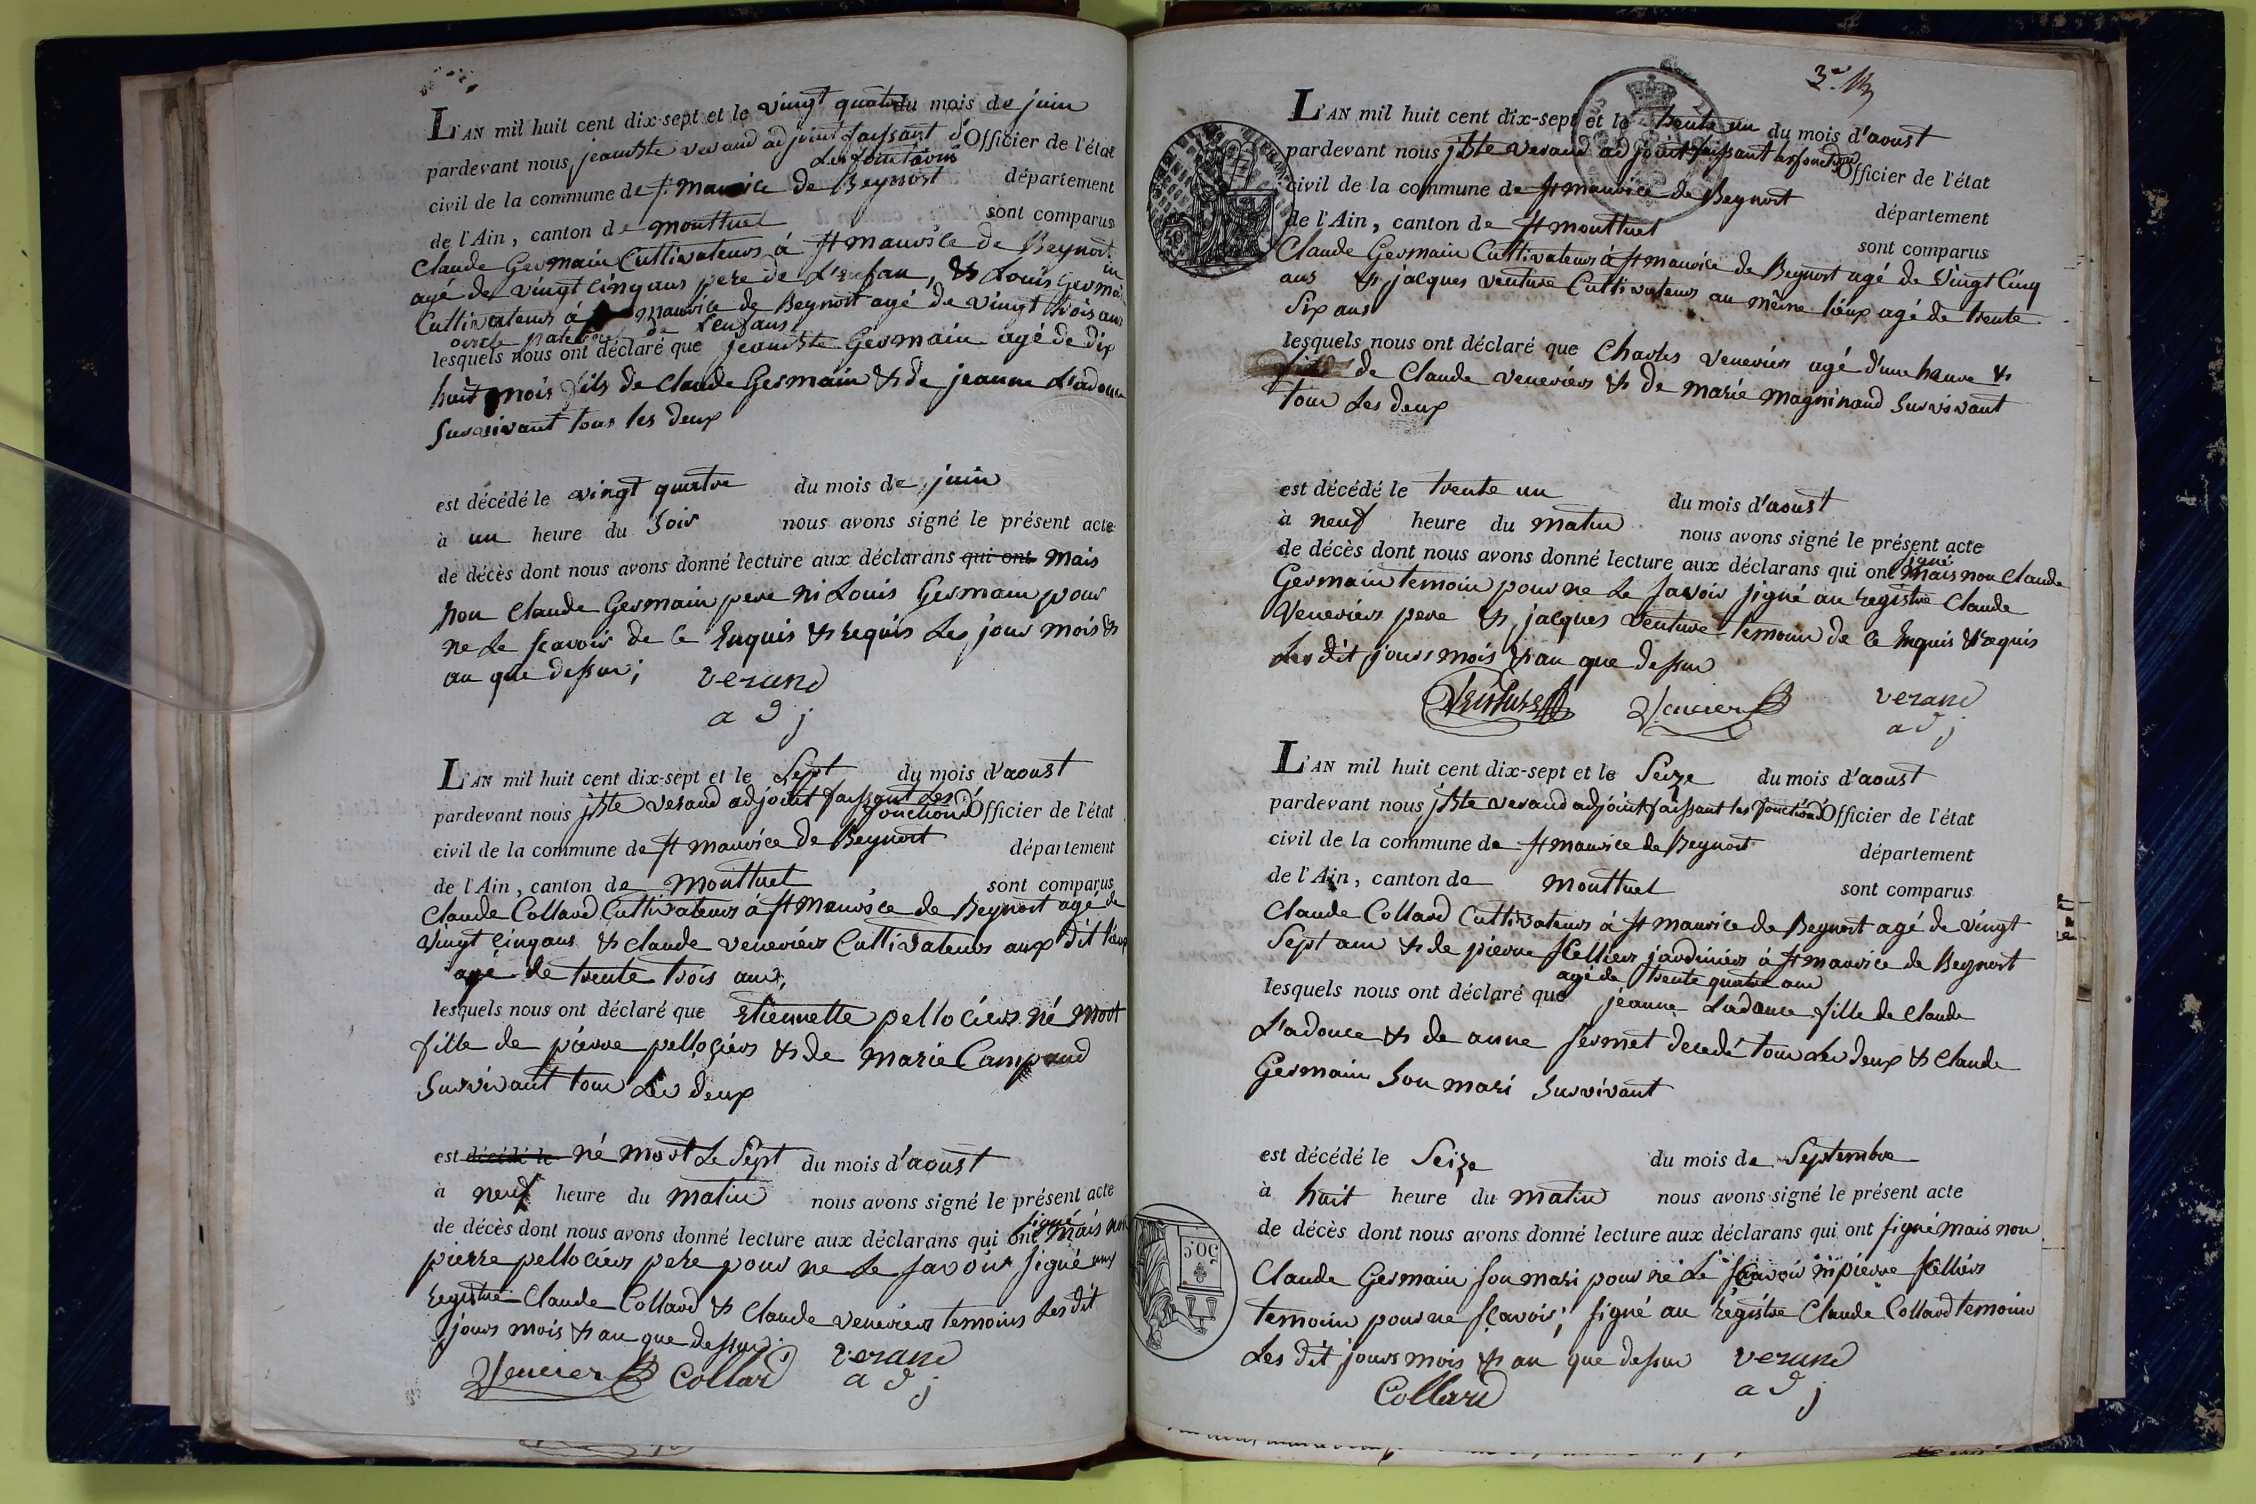 L'AN mil huit cent dix-sept et le vingt quatre du mois de juin
pardevant nous jeanbte verand adjoint faissant
les fonctions d'Officier de l'état
civil de la commune de st maurice de Beynost département
de l'Ain, canton de montluel sont comparus
Claude Germain Cultivateurs à st maurice de Beynost
agé de vingt cinq ans pere de L'enfan, & Louis Germain
Cultivateurs à maurice de Beynost agé de vingt trois ans
oncle paternel de L'enfans
lesquels nous ont déclaré que jeanbte Germain agé de dix
huit mois fils de Claude Germain & de jeanne L'adouce
Survivant tous les deux
est décédé le vingt quatre du mois de juin
à un heure du Soir nous avons signé le présent acte
de décès dont nous avons donné lecture aux déclarans qui ont mais
non Claude Germain pere ni Louis Germain pour
ne Le scavoir de Ce Enquis & requis Les jour mois &
an que dessus;
verand
adj
L'AN mil huit cent dix-sept et le Sept du mois d'aoust
pardevant nous jbte verand adjoint faissant Les
fonctions d'Officier de l'état
civil de la commune de st maurice de Beynost département
de l'Ain, canton de montluel sont comparus
Claude Collard Cultivateurs à st maurice de Beynost agé de
vingt cinq ans & claude veneriers Cultivateurs aux dit lieux
agé de trente trois ans,
lesquels nous ont déclaré que Etiennette pellociers né mort
fille de pierre pellociers & de marie Campand
Survivant tous Les deux
est décédé le né mort Le Sept du mois d'aoust
à neuf heure du matin nous avons signé le présent acte
de décès dont nous avons donné lecture aux déclarans qui ont signé mais non
pierre pellociers pere pour ne Le savoir signé aux
registre Claude Collard & Claude veneriers temoins Les dit
jours mois & an que dessus
Venerier Collard verand
adj
3e
L'AN mil huit cent dix-sept et le trente un du mois d'aoust
pardevant nous jbte verand adjoint faissant les fonctions d'Officier de l'état
civil de la commune de st maurice de Beynost département
de l'Ain, canton de st montluel sont comparus
Claude Germain Cultivateurs à st maurice de Beynost agé de vingt Cinq
ans & jacques venture Cultivateurs au même lieux agé de trente
Six ans
lesquels nous ont déclaré que Charles veneriers agé d'une heure &
fils de Claude veneriers & de marie magninand Survivant
tous Les deux
est décédé le trente un du mois d'aoust
à neuf heure du matin nous avons signé le présent acte
de décès dont nous avons donné lecture aux déclarans qui ont signé mais non Claude
Germain temoin pour ne Le savoir signé au registre Claude
Veneriers pere & jacques venture temoin de Ce Enquis & requis
Les dit jours mois & an que dessus
Venture Venerier verand
adj
L'AN mil huit cent dix-sept et le Seize du mois d'aoust
pardevant nous jbte verand adjoint faissant les fonctions d'Officier de l'état
civil de la commune de st maurice de Beynost département
de l'Ain, canton de montluel sont comparus
Claude Collard Cultivateurs à st maurice de Beynost agé de vingt
Sept ans & de pierre scelliers jardiniers à st maurice de Beynost
agé de trente quatre ans
lesquels nous ont déclaré que jeanne Ladouce fille de Claude
L'adouce & de anne fermet decedé tous Les deux & Claude
Germain Son mari Survivant
est décédé le Seize du mois de Septembre
à huit heure du matin nous avons signé le présent acte
de décès dont nous avons donné lecture aux déclarans qui ont signé mais non
Claude Germain son mari pour ne Le scavoir ni pierre scelliers
temoins pour ne scavoir; signé au registre Claude Collard temoins
Les dit jours mois & an que dessus verand
Collard adj
50c